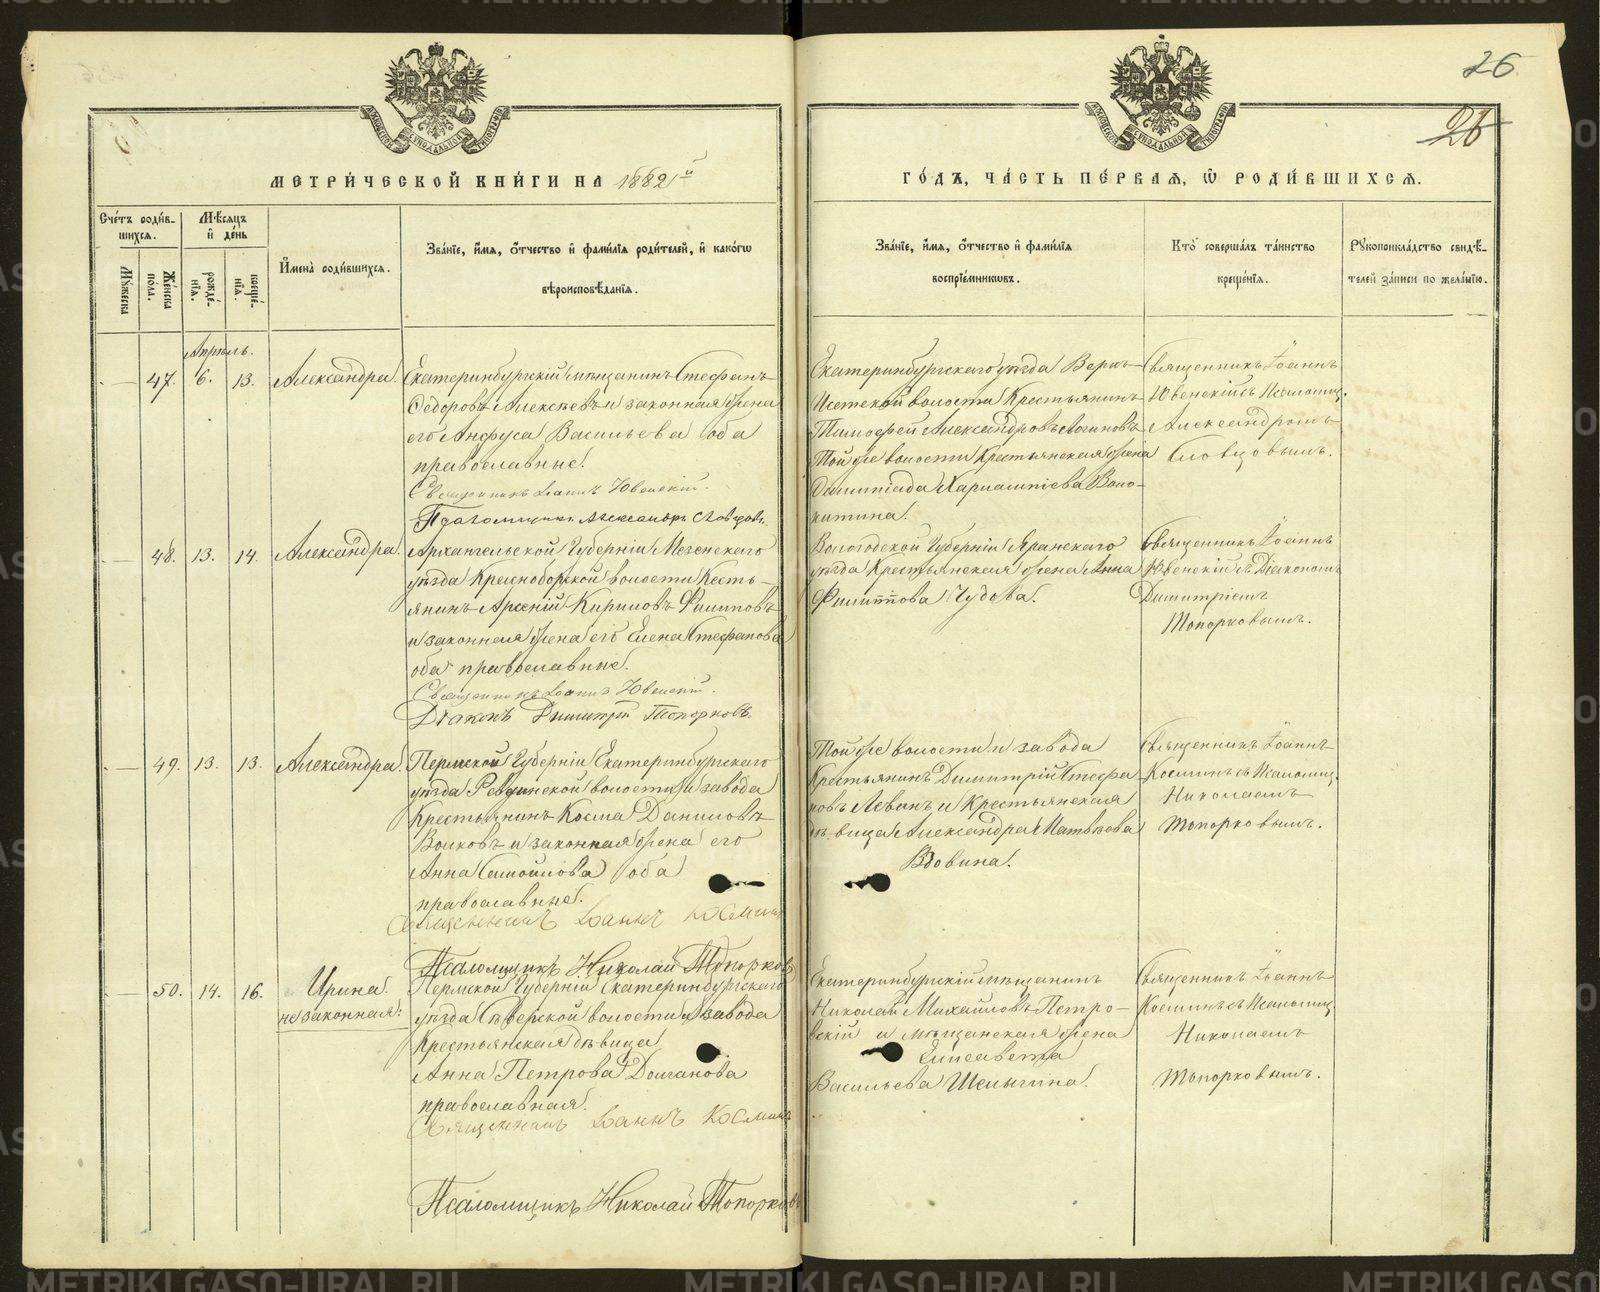 26
26
МЕТРИ́ЧЕСКОЙ КНИ́ГИ НА 1882й
ГО́ДЪ, ЧА́СТЬ ПЕ́РВАЯ, Ѡ РОДИ́ВШИХСЯ.
Сче́тъ роди́в-
шихся.
Мѣсяцъ
и де́нь
Мꙋжеска
Же́нска
пола.
рожде́-
нїя.
креще́-
нїя.
И҆мена̀ роди́вшихся.
Зва́нїе, и҆́мя, ѻ҆́тчество и҆ фами́лїя роди́телей, и҆ како́гѡ
вѣроисповѣ́данїя.
Зва́нїе, и҆́мя, ѻ҆́тчество и҆ фами́лїя
воспрїе́мникѡвъ.
Кто̀ соверша́лъ та́инство
креще́нїя.
Рꙋкоприкла́дство свидѣ́-
телей за́писи по жела́нїю.
Апрѣль.
— 47. 6. 13. Александра.
Екатеринбургскій мѣщанинъ Стефанъ
Ѳедоровъ Алексѣевъ и законная жена
его Анфуса Васильева оба
православные.
Священникъ Іоаннъ Ювенскій.
Псаломщикъ Александръ Словцовъ.
Екатеринбургскаго уѣзда Верхъ-
Исетской волости Крестьянинъ
Тимофей Александровъ Логиновъ
Той же волости Крестьянская жена
Олимпіада Харлампіева Воло-
китина.
Священникъ Іоаннъ
Ювенскій съ Псаломщ.
Александромъ
Словцовымъ.
— 48. 13. 14. Александра.
Архангельской Губерніи Мезенскаго
уѣзда Красноборской волости Кресть-
янинъ Арсеній Кириловъ Филиповъ
и законная жена его Елена Стефанова
оба православные.
Священникъ Іоаннъ Ювенскій.
Діаконъ Димитрій Топорковъ.
Вологодской Губерніи Яранскаго
уѣзда Крестьянская жена Анна
Филиппова Чудова.
Священникъ Іоаннъ
Ювенскій съ Діакономъ
Димитріемъ
Топорковымъ.
— 49. 13. 13. Александра.
Пермской Губерніи Екатеринбургскаго
уѣзда Ревдинской волости и завода
Крестьянинъ Косма Даниловъ
Волковъ и законная жена его
Анна Самойлова оба
православные.
Священникъ Іоаннъ Косминъ
Псаломщикъ Николай Топорковъ
Той же волости и завода
Крестьянинъ Димитрій Стефа
новъ Леванъ и Крестьянская
дѣвица Александра Матвѣева
Вдовина.
Священникъ Іоаннъ
Косминъ съ Псаломщ.
Николаемъ
Топорковымъ.
— 50. 14. 16. Ирина.
незаконная:
Пермской Губерніи Екатеринбургскаго
уѣзда Сѣверской волости и завода
Крестьянская дѣвица
Анна Петрова Долганова
православная.
Священникъ Іоаннъ Косминъ
Псаломщикъ Николай Топорковъ
Екатеринбургскій мѣщанинъ
Николай Михайловъ Петро-
вскій и мѣщанская жена
Елисавета
Васильева Шелыгина.
Священникъ Іоаннъ
Косминъ съ Псаломщ.
Николаемъ
Топорковымъ.
METRIKI.GASO-URAL.RU